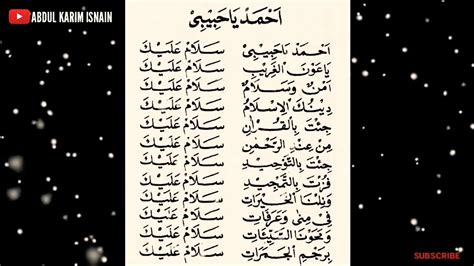 ABDUL KARIM ISNAIN
اَحْمَدْ يَا حَبِيْبِيْ
اَحْمَدْ يَاحَبِيْبِيْ سَلَامْ عَلَيْكَ
يَاعَوْنَ الْغَرِيْبِ سَلَامْ عَلَيْكَ
اَمْنٌ وَسَلَامٌ سَلَامْ عَلَيْكَ
دِيْنُكَ الْاِسْلَامُ سَلَامْ عَلَيْكَ
جِئْتَ بِالْقُرْاٰنِ سَلَامْ عَلَيْكَ
مِنْ عِنْدِ الرَّحْمٰنِ سَلَامْ عَلَيْكَ
جِئْتَ بِالتَّوْحِيْدِ سَلَامْ عَلَيْكَ
فُزْتَ بِالتَّمْجِيْدِ سَلَامْ عَلَيْكَ
وَبِلْنَا الْخَيْرَاتِ سَلَامْ عَلَيْكَ
فِيْ مِنٰى وَعَرَفَاتِ سَلَامْ عَلَيْكَ
وَمَحَوْنَا السَّيِّئَاتِ سَلَامْ عَلَيْكَ
بِرَجْمِ الْجَمَرَاتِ سَلَامْ عَلَيْكَ
SUBSCRIBE